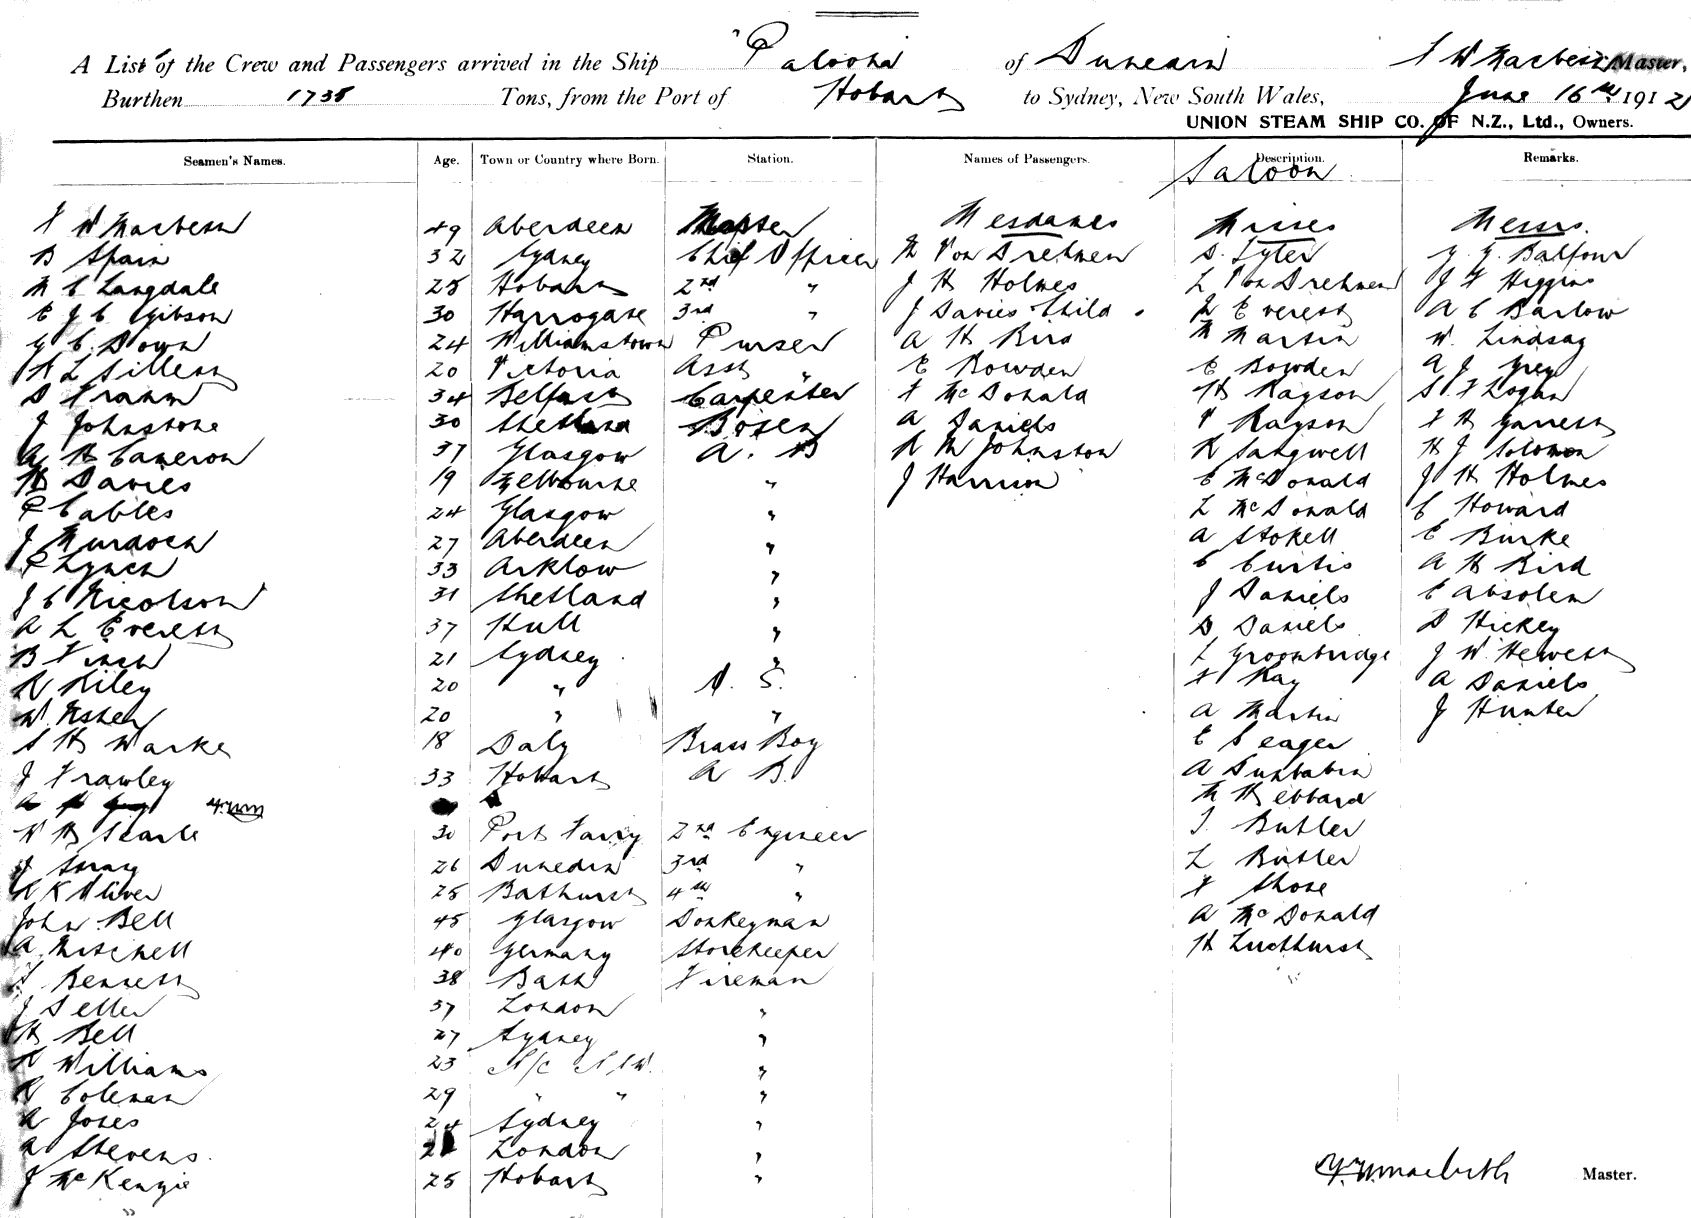 A List of the Crew and Passengers arrived in the Ship "Paloona of Dunedin F W Macbeth Master,
Burthen 1738 Tons, from the Port of Hobart to Sydney, New South Wales, June 16th 1912
UNION STEAM SHIP CO. OF N.Z., Ltd., Owners.
Seamen's Names. Age. Town or Country where Born. Station. Names of Passengers. Description. Remarks.
Saloon
F W Macbeth 49 Aberdeen Master Mesdames Misses Messrs.
B Spain 32 Sydney Chief Officer M Von Drehnen S. Lyter G. G. Balfour
M C Langdale 28 Hobart 2nd " J H Holmes L Von Drehnen J F Higgins
E J C Gibson 30 Harrogate 3rd " J Davies Child . L Everett A C Barlow
G C Down 24 Williamstown Purser A H Bird M Martin W. Lindsay
R L Sillett 20 Victoria Asst " E Bowden E Bowden A J Grey
D Frahm 34 Belfast Carpenter F McDonald H Rayson S F Logan
J Johnstone 30 Shetland Bosen A Daniels V Rayson F H Garrett
A H Cameron 37 Glasgow A. B R M Johnston R Sangwell H J Solomon
H Davies 19 Melbourne " J Harrison E McDonald J H Holmes
P Cables 24 Glasgow " L McDonald C Howard
J Murdoch 27 Aberdeen " A Stokell E Burke
P Lynch 33 Arklow " C Curtis A H Bird
J C Nicolson 31 Shetland " J Daniels E Absolem
A L Everett 37 Hull " D Daniels D Hickey
B Finch 21 Sydney " L Groombridge J W Hewett
R Riley 20 " O. S. F Kay A Daniels
W. Usher 20 " " A Martin J Hunter
S H Warke 18 Daly Brass Boy E Seager
J Frawley 33 Hobart A B. A Dunbabin
M Hebbard
W H Searle 30 Port Fairy 2nd Engineer T. Butler
J Gray 26 Dunedin 3rd " L Butler
R K Oliver 28 Bathurst 4th " F Shone
John Bell 45 Glasgow Donkeyman A McDonald
A Mitchell 40 Germany Storekeeper H Luckhurst
Bennett 38 Bath Fireman
J Seller 37 London "
H Bell 27 Sydney "
R Williams 23 N/C N.S.W. "
R Coleman 29 " " "
A Jones 24 Sydney "
A Stevens. London "
J McKenzie 25 Hobart "
F. W. Macbeth Master.